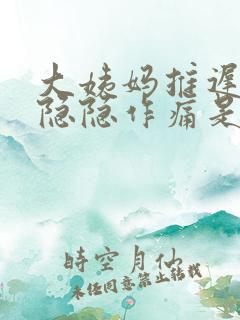 大姨妈推迟
隐隐作痛是
時空月仙
未经同意禁止转载